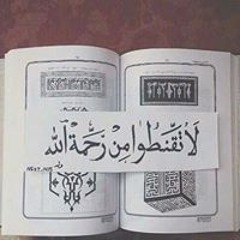 لَا تَقْنَطُوا مِنْ رَحْمَةِ اللَّه